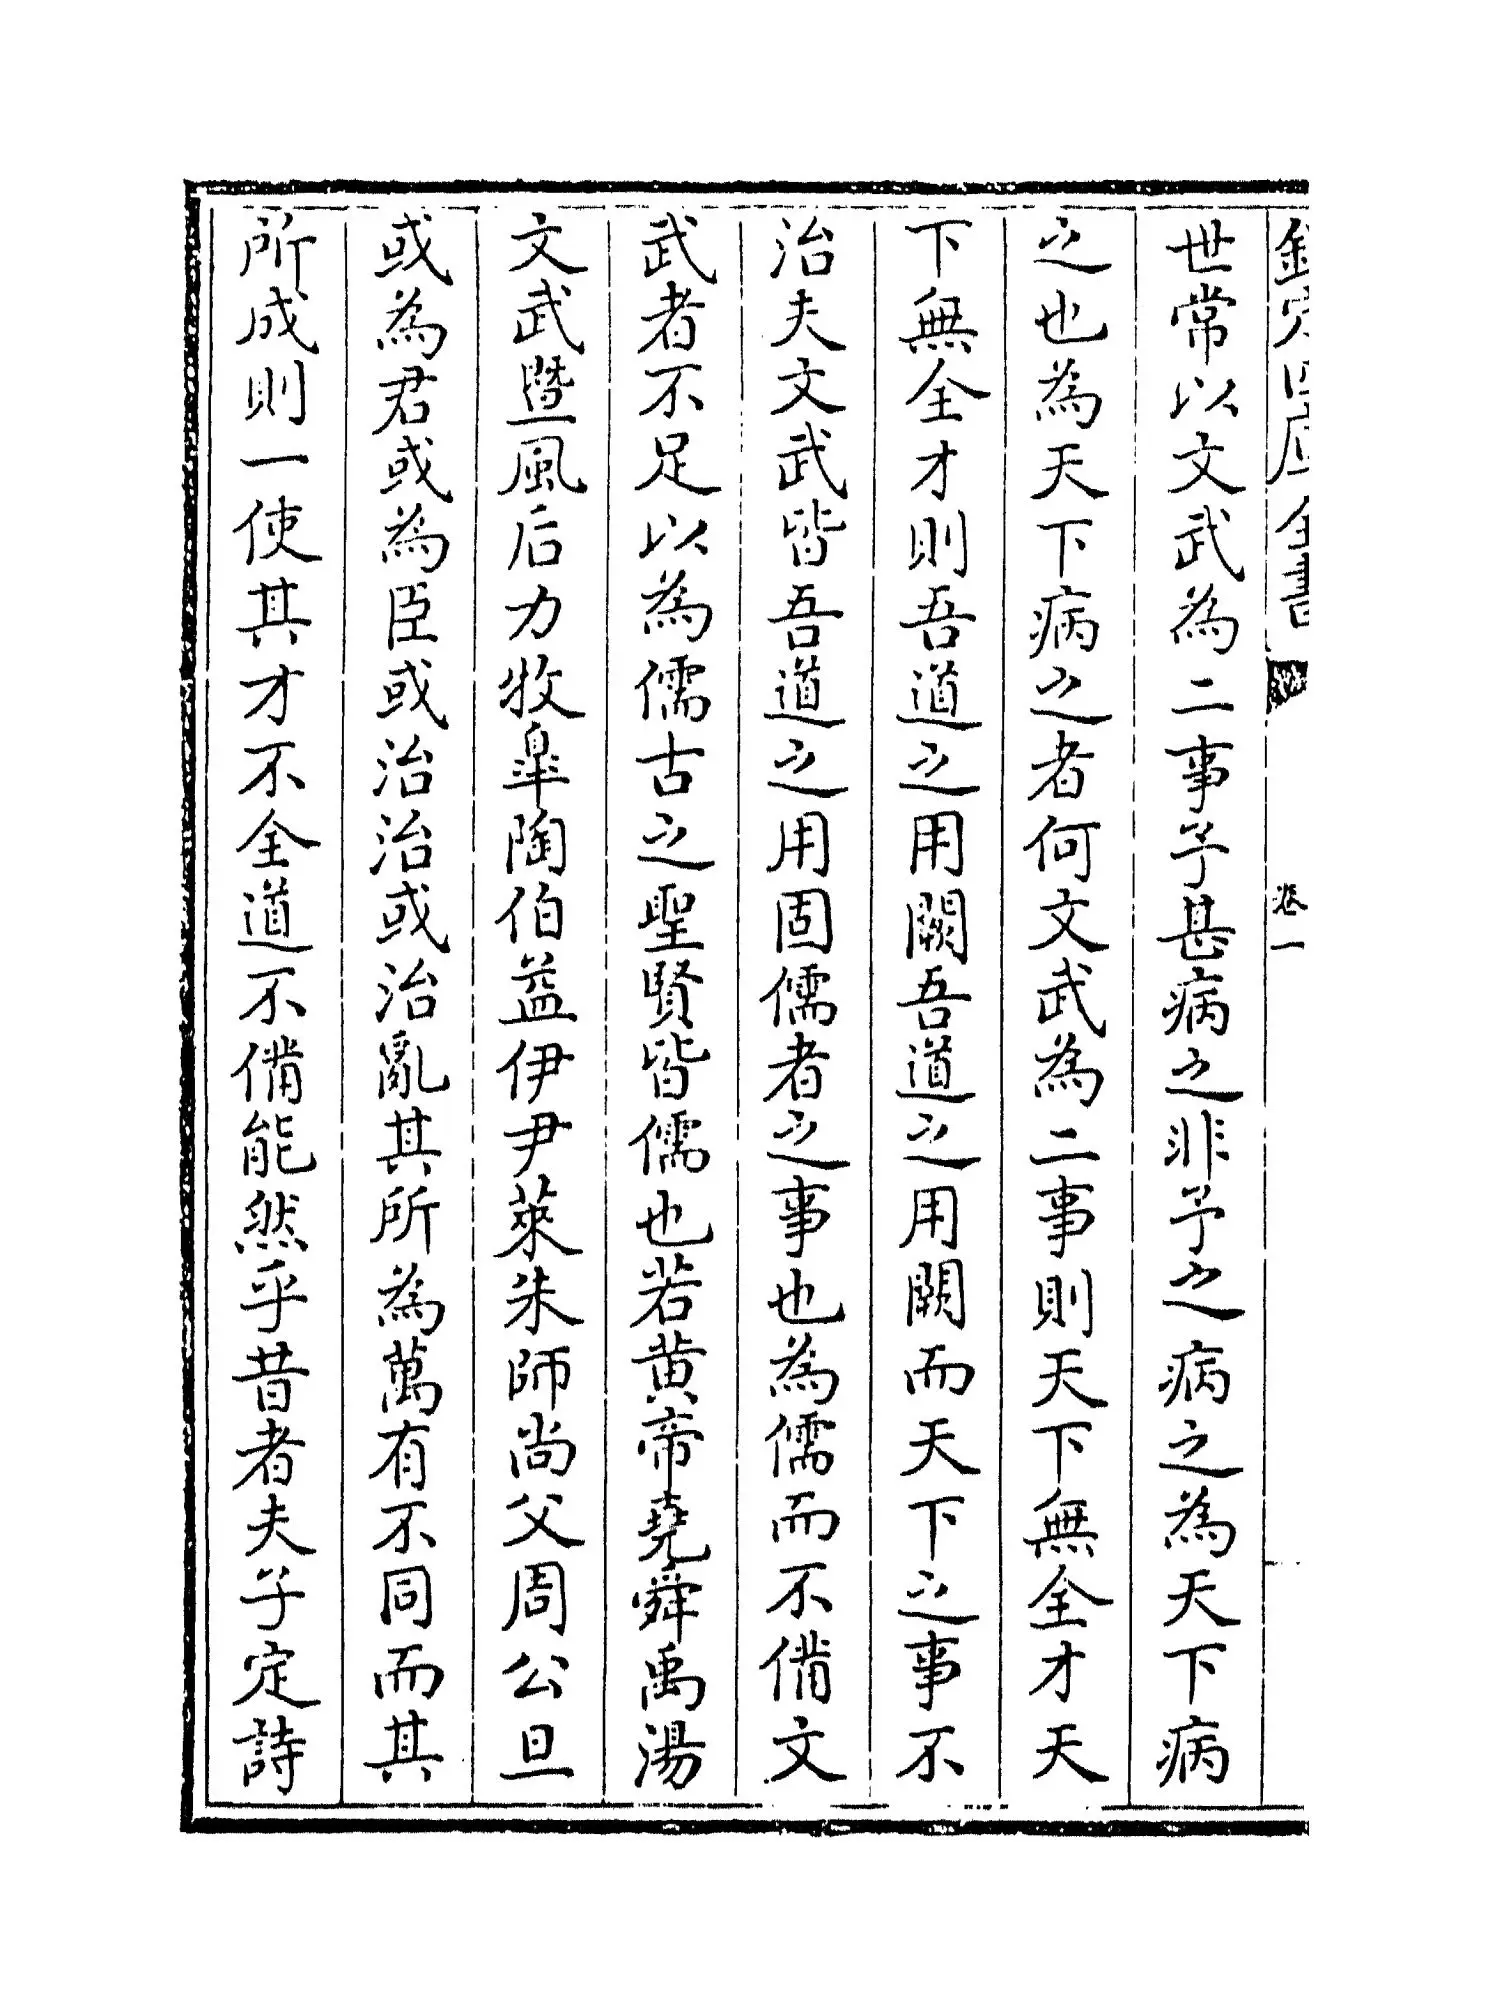 欽定四庫全書
卷一
世常以文武為二事予甚病之非予之病之為天下病
之也為天下病之者何文武為二事則天下無全才天
下無全才則吾道之用闕吾道之用闕而天下之事不
治夫文武皆吾道之用固儒者之事也為儒而不備文
武者不足以為儒古之聖賢皆儒也若黃帝堯舜禹湯
文武暨風后力牧臯陶伯益伊尹萊朱師尚父周公旦
或為君或為臣或治治或治亂其所為萬有不同而其
所成則一使其才不全道不備能然乎昔者夫子定詩